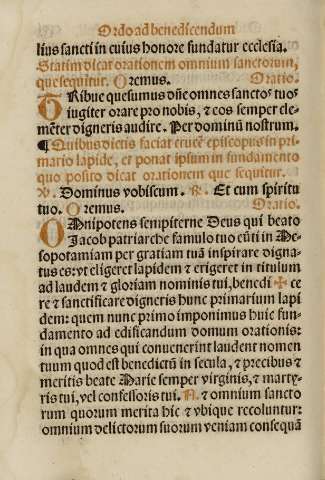 Ordo ad benedicendum
lius sancti in cuius honore fundatur ecclesia.
Statim dicat orationem omnium sanctorum,
que sequitur. Oremus. Oratio.
TRibue quesumus dñe omnes sanctos tuos
iugiter orare pro nobis, & eos semper cle-
mẽter digneris audire. Per dominũ nostrum.
¶ Quibus dictis faciat crucẽ episcopus in pri-
mario lapide, et ponat ipsum in fundamento
quo posito dicat orationem que sequitur.
℣. Dominus vobiscum. ℟. Et cum spiritu
tuo. Oremus. Oratio.
OMnipotens sempiterne Deus qui beato
Jacob patriarche famulo tuo eũti in Me-
sopotamiam per gratiam tuã inspirare digna-
tus es: vt eligeret lapidem & erigeret in titulum
ad laudem & gloriam nominis tui, benedi ✠ ce
re & sanctificare digneris hunc primarium lapi
dem: quem nunc primo imponimus huic fun-
damento ad edificandum domum orationis:
in qua omnes qui conuenerint laudent nomen
tuum quod est benedictũ in secula, & precibus &
meritis beate Marie semper virginis, & marty-
ris tui, vel confessoris tui. N. & omnium sancto
rum quorum merita hic & vbique recoluntur:
omnium delictorum suorum veniam consequã